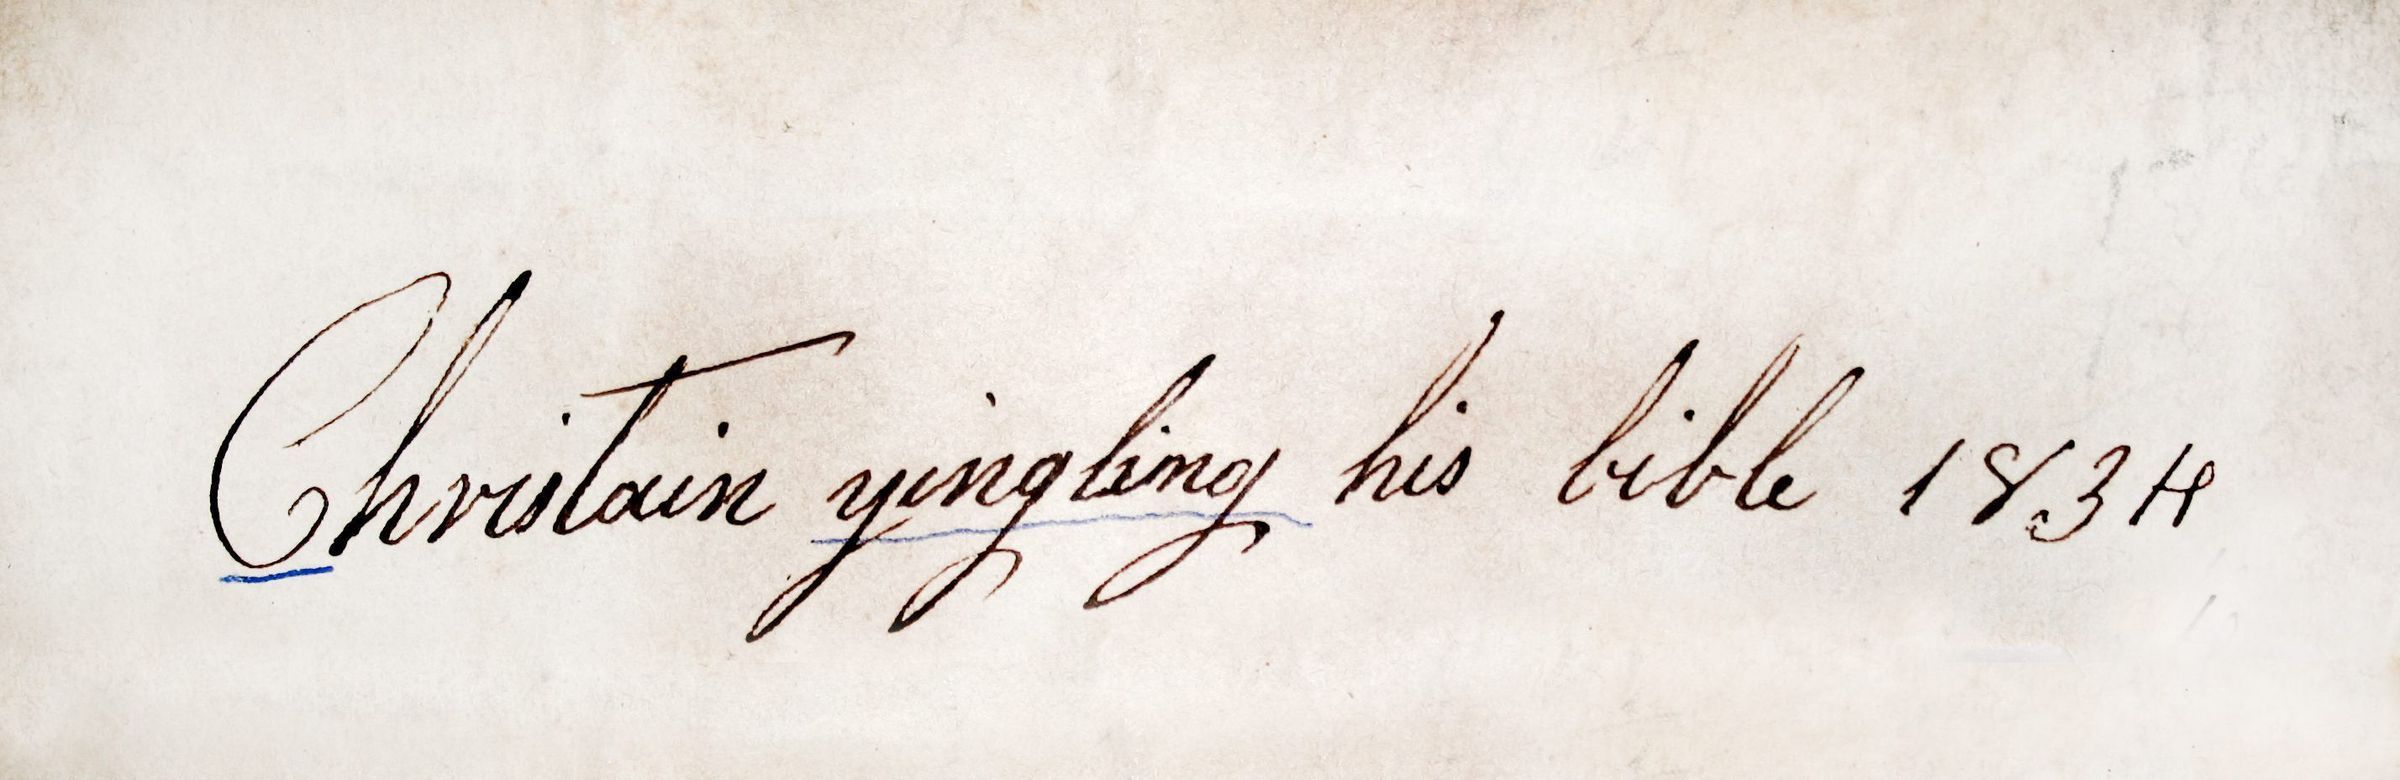 Christain yingling his bible 1834